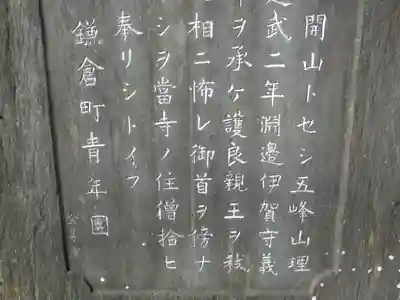 開山トセシ五峰山理
武二年淵邊伊賀守義
ヲ承ケ護良親王ヲ弑
相ニ怖レ御首ヲ傍ナ
シヲ當寺ノ住僧拾ヒ
奉リシトイフ
鎌倉町青年團